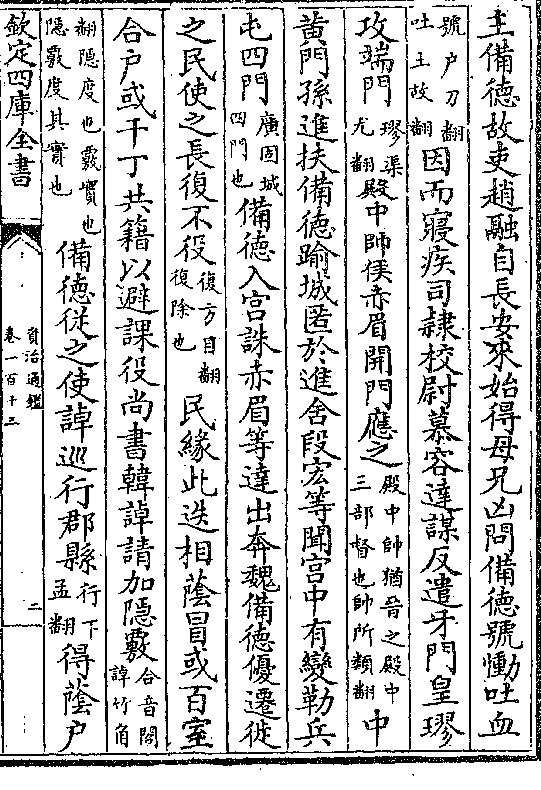 主備德故吏趙融自長安來始得母兄凶問備德號慟吐血
號户刀翻
吐土故翻
因而寢疾司隷校尉慕容達謀反遣牙門皇璆
攻端門
璆渠
尤翻
殿中師侯赤眉開門應之
殿中帥猶晉之殿中
三部督也帥所類翻
中
黄門孫進扶備德踰城匿於進舍段宏等聞宮中有變勒兵
屯四門
廣固城
四門也
備德入宮誅赤眉等達出奔魏備德優遷徙
之民使之長復不役
復方目翻
復除也
民緣此迭相蔭冒或百室
合户或千丁共籍以避課役尚書韓𧨳請加隠覈
合音閤
𧨳竹角
翻隠度也覈實也
隠覈度其實也
備德從之使𧨳巡行郡縣
行下
孟翻
得蔭户
欽定四庫全書
資治通鑑
卷一百十三
二